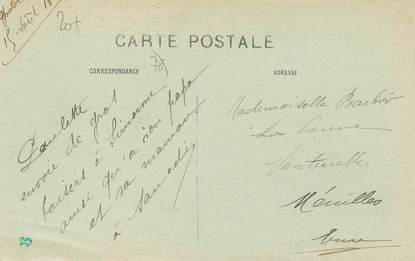 15 Août 18
20+
CARTE POSTALE
CORRESPONDANCE
ADRESSE
Paulette
envoie de gros
baisers à Simonne
ainsi qu'à son papa
et sa maman
à Samedi
Mademoiselle Barbier
La
Ménilles
Eure